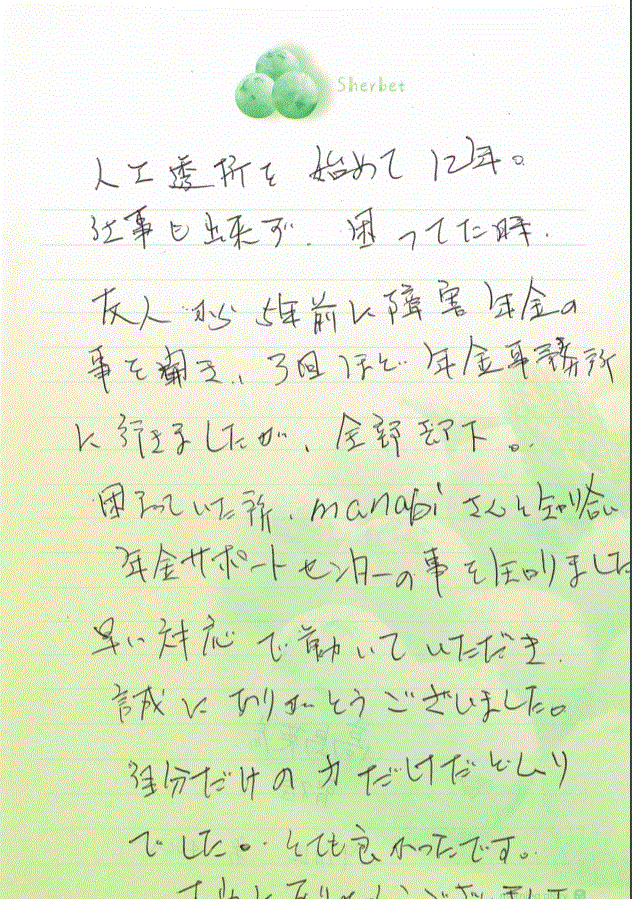 Sherbet
人工透析を始めて12年。
仕事も出来ず、困ってた時、
友人から5年前に障害年金の
事を聞き、3回ほど年金事務所
に行きましたが、全部却下。
困っていた所、manabiさんと知り合い
年金サポートセンターの事を知りました
早い対応で動いていただき、
誠にありがとうございました。
自分だけの力だけだとムリ
でした。とても良かったです。